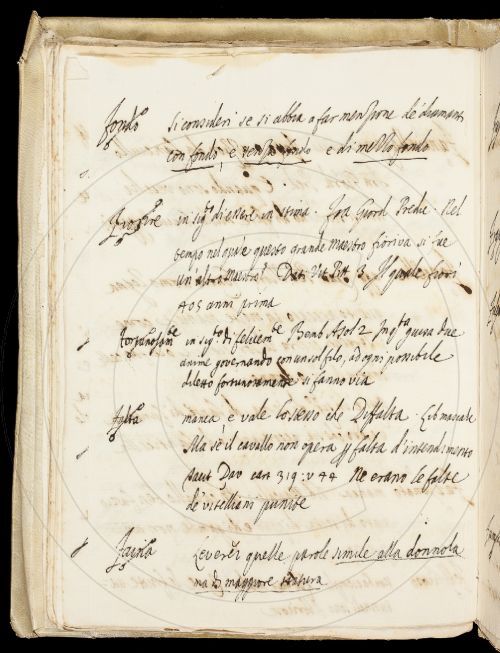 Fondo Si consideri se si abbia a far menzione de' diamanti
con fondo, e senza fondo e di mezzo fondo
Fiorire in sig.to di essere in stima. Fra Giord. Pred. Nel
tempo nel quale questo grande Maestro fioriva si fue
un altro Maestro. Dat. Vit. Pitt. 3. Il quale fiorì
403 anni prima
Fortunosam.te in sig.to di felicem.te Bemb. Asol. 2 In q.ta guisa due
anime governando con un sol filo, ad ogni possibile
diletto fortunosamente si fanno via
Falta manca, e vale lo stesso che Diffalta. Lib. mascalc.
Ma se il cavallo non opera p falta d'intendimento
Dav. cart. 319: v 44 Ne erano le falte
de' vitelliani punite
Faina Leverei quelle parole simile alla donnola
ma di maggiore statura